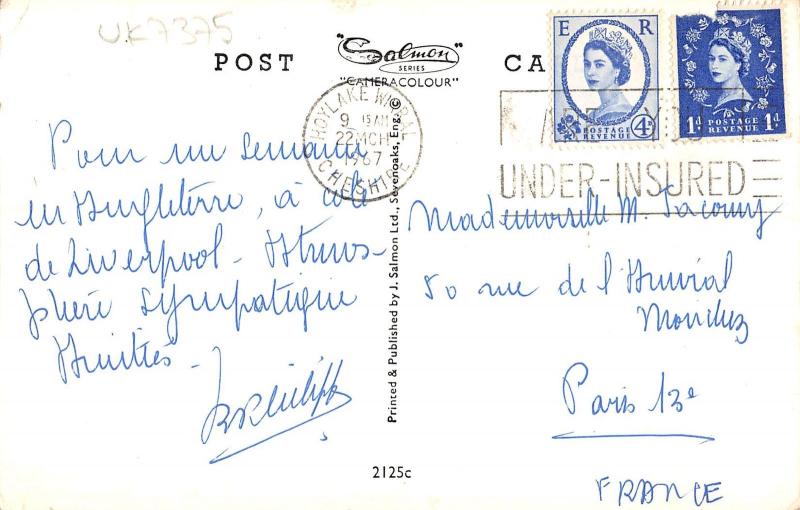 UK7375
POST CA
"Salmon"
SERIES
"CAMERACOLOUR"
E R
4D
POSTAGE
REVENUE
1d POSTAGE REVENUE 1d
HOYLAKE WIRRAL
9 15 AM
22 MCH
1967
CHESHIRE
UNDER-INSURED
Pour une semaine
en Angleterre, à côté
de Liverpool - Atmos-
phère sympatique
Amitiés -
Mademoiselle M.
50 rue de l'Amiral
Mouchez
Paris 13e
FRANCE
Printed & Published by J. Salmon Ltd., Sevenoaks, Eng. ©
2125c